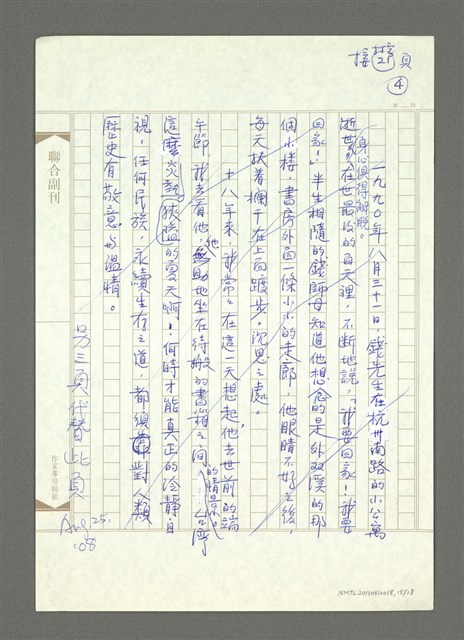 接 21 頁
④
一九九〇年八月三十一日,錢先生在杭州南路的小公寓
逝世,身心俱得解脫。在世最後的每天裡,不斷地說,「我要回家!我要
回家!」半生相隨的錢師母知道他想念的是外双溪的那
個小楼,書房外面一條小小的走廊,他眼睛不好之後,
每天扶着欄干在上面踱步,沉思之處。
十八年來,我常常在這一天想起他,他去世前的端
午節我去看他,無助地坐在待搬的書箱之間的情景。台灣
這麼炎熱狹隘的夏天啊!何時才能真正的冷靜自
視,任何民族,永續生存之道,都須對人類
歷史有敬意与溫情。
另三頁代替此頁
Aug. 25,
'08
聯合副刊
作家專用稿紙
NMTL20130310018, 15/18